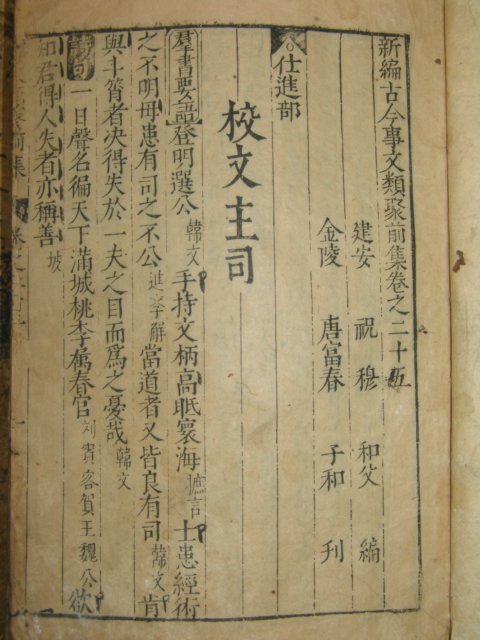 新編古今事文類聚前集卷之二十五
建安 祝 穆 和父 編
金陵 唐富春 子和 刊
仕進部
校文主司
羣書要語登明選公韓文手持文柄高眂寰海摭言士患經術
之不明毋患有司之不公進學解當道者又皆良有司韓文肯
與斗筲者决得失於一夫之目而爲之憂哉韓文
詩句一日聲名徧天下滿城桃李屬春官刘賓客賀王魏公欲
知君得人失者亦稱善坡